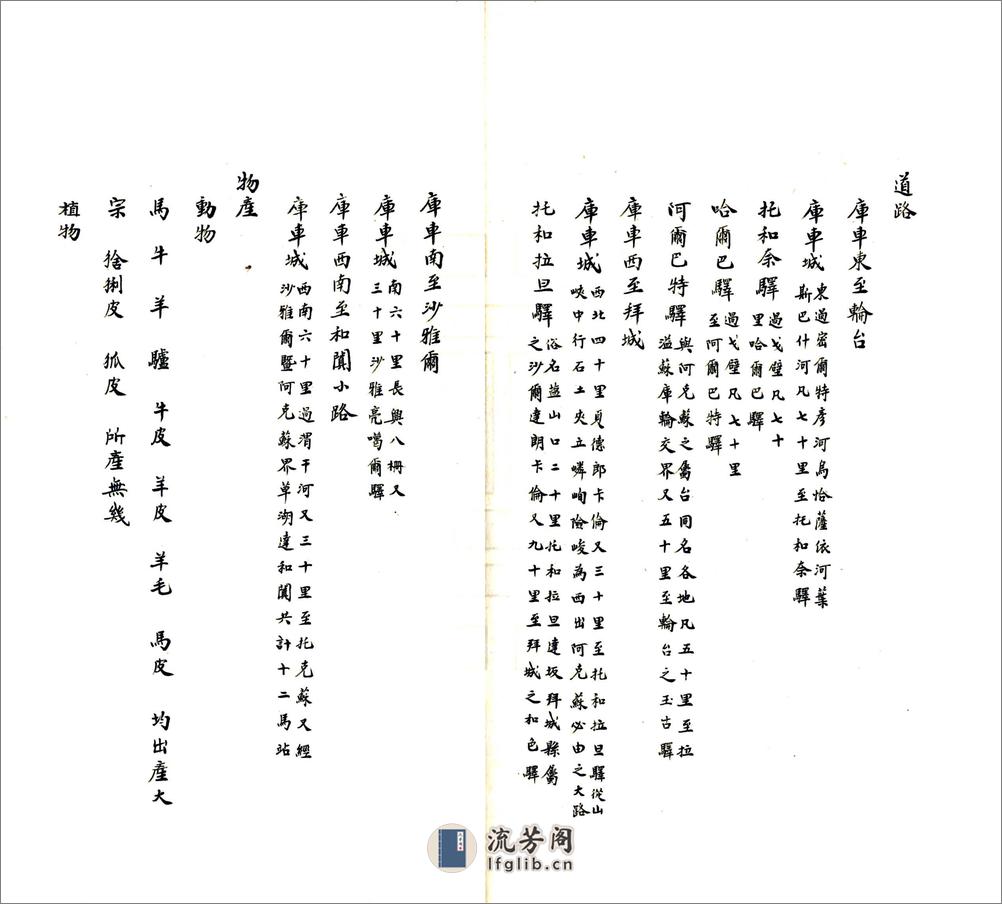 道路
庫車東至輪台
庫車城東過密爾特彥河烏恰薩依河葉
斯巴什河凡七十里至托和奈驛
托和奈驛過戈壁凡七十
里哈爾巴驛
哈爾巴驛過戈壁凡七十里
至阿爾巴特驛
阿爾巴特驛與阿克蘇之屬台同名各地凡五十里至拉
溢蘇庫輪交界又五十里至輪台之玉古驛
庫車西至拜城
庫車城西北四十里頁德郎卡倫又三十里至托和拉旦驛從山
峽中行石土夾立嶙峋險峻為西出阿克蘇必由之大路
托和拉旦驛俗名盐山口二十里托和拉旦達坂拜城縣屬
之沙爾達朗卡倫又九十里至拜城之和色驛
庫車南至沙雅爾
庫車城南六十里長與八柵又
三十里沙雅亮噶爾驛
庫車西南至和闐小路
庫車城西南六十里過渭干河又三十里至托克蘇又經
沙雅爾暨阿克蘇界草湖達和闐共計十二馬站
物產
動物
馬 牛 羊 驢 牛皮 羊皮 羊毛 馬皮 均出產大
宗 捨猁皮 狐皮 所產無幾
植物
流芳阁
lfglib.cn